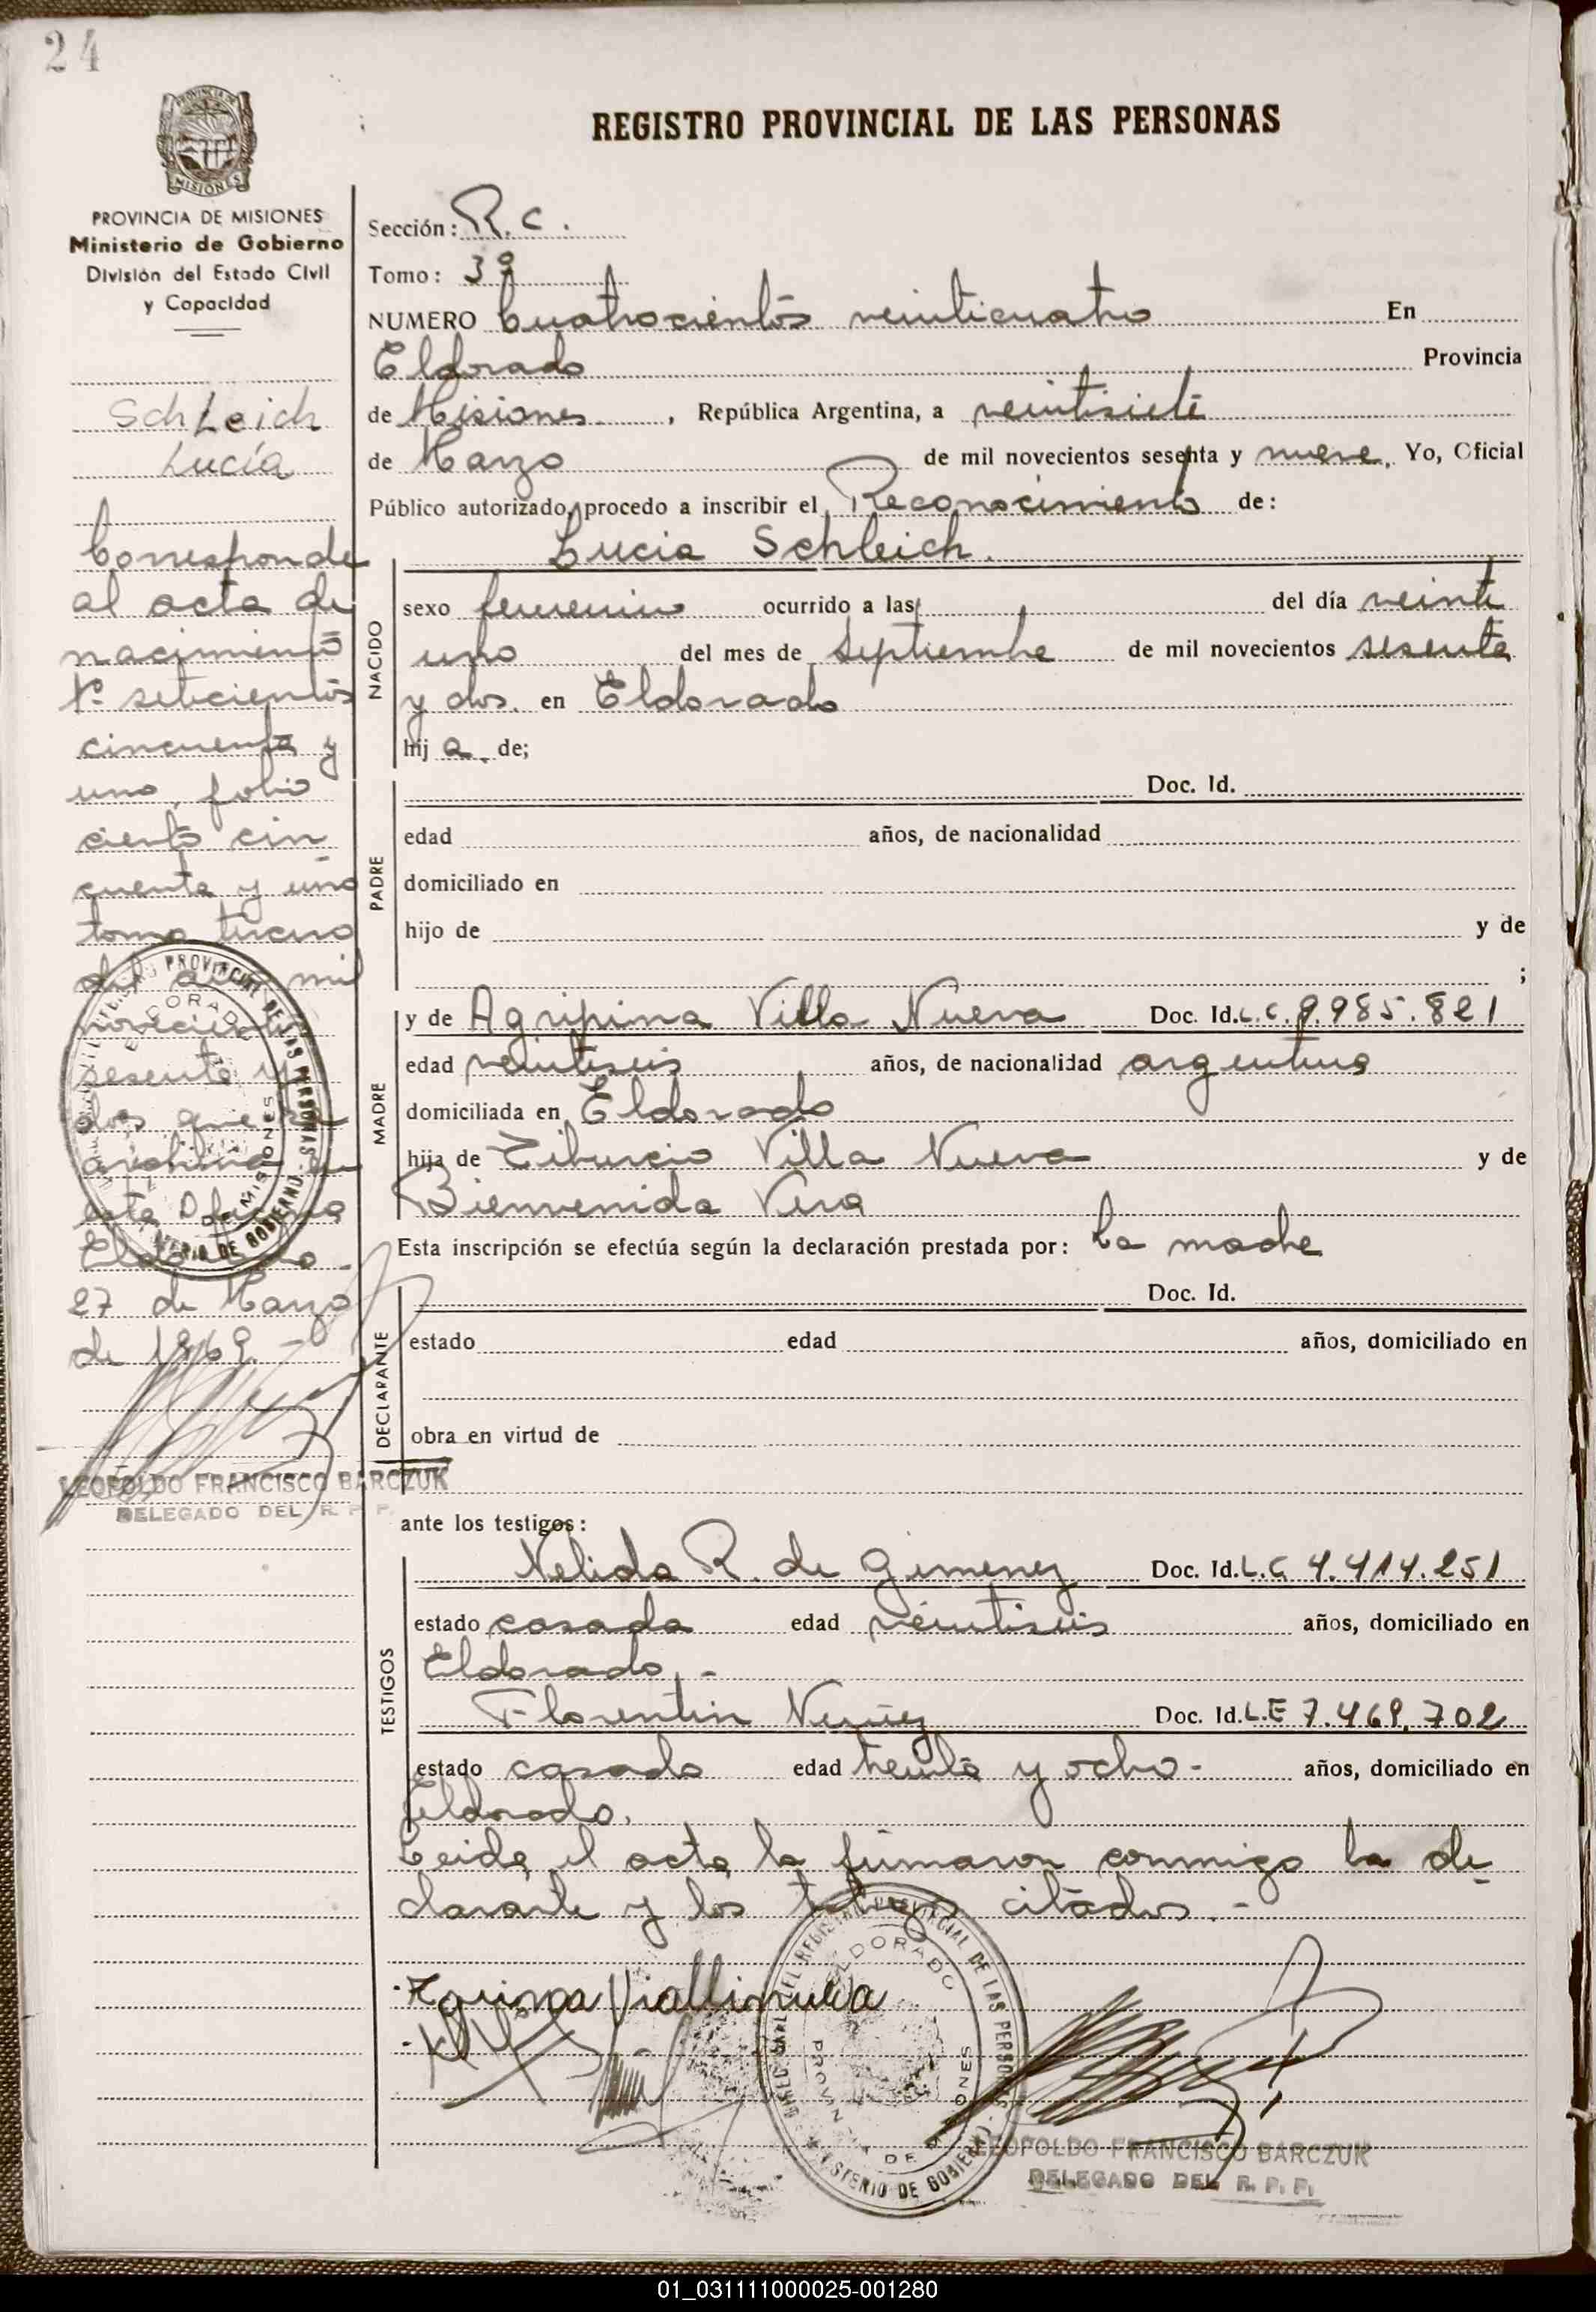 24
PROVINCIA DE MISIONES
Ministerio de Gobierno
División del Estado Civil
y Capacidad
Schleich
Lucía
Corresponde
al acta de
nacimiento
Nº setecientos
cincuenta y
uno, folio
ciento cin
cuenta y uno
tomo tercero
del año mil
novecientos
sesenta y
dos que se
archiva en
esta Oficina
Eldorado
27 de Marzo
de 1969.-
LEOPOLDO FRANCISCO BARCZUK
DELEGADO DEL R. P. P.
REGISTRO PROVINCIAL DE LAS PERSONAS
Sección: R.C.
Tomo: 3º
NUMERO Cuatrocientos veinticuatro En
Eldorado Provincia
de Misiones, República Argentina, a veintisiete
de Marzo de mil novecientos sesenta y nueve, Yo, Oficial
Público autorizado, procedo a inscribir el Reconocimiento de:
Lucia Schleich.
NACIDO
sexo femenino ocurrido a las del día veinti
uno del mes de septiembre de mil novecientos sesenta
y dos. en Eldorado
hij a de;
PADRE
Doc. Id.
edad años, de nacionalidad
domiciliado en
hijo de y de
;
MADRE
y de Agripina Villa Nueva Doc. Id. L.C. 9.985.821
edad veintiseis años, de nacionalidad argentina
domiciliada en Eldorado
hija de Tiburcio Villa Nueva y de
Bienvenida Vera
Esta inscripción se efectúa según la declaración prestada por: La madre
DECLARANTE
Doc. Id.
estado edad años, domiciliado en
obra en virtud de
ante los testigos:
TESTIGOS
Nelida R. de Gimenez Doc. Id. L.C 4.414.251
estado casada edad veintiseis años, domiciliado en
Eldorado.-
Florentin Nuñez Doc. Id. L.E 7.469.702
estado casado edad treinta y ocho- años, domiciliado en
Eldorado.
Leida el acta la firmaron conmigo la de
clarante y los testigos citados.-
LEOPOLDO FRANCISCO BARCZUK
DELEGADO DEL R. P. P.
01_031111000025-001280